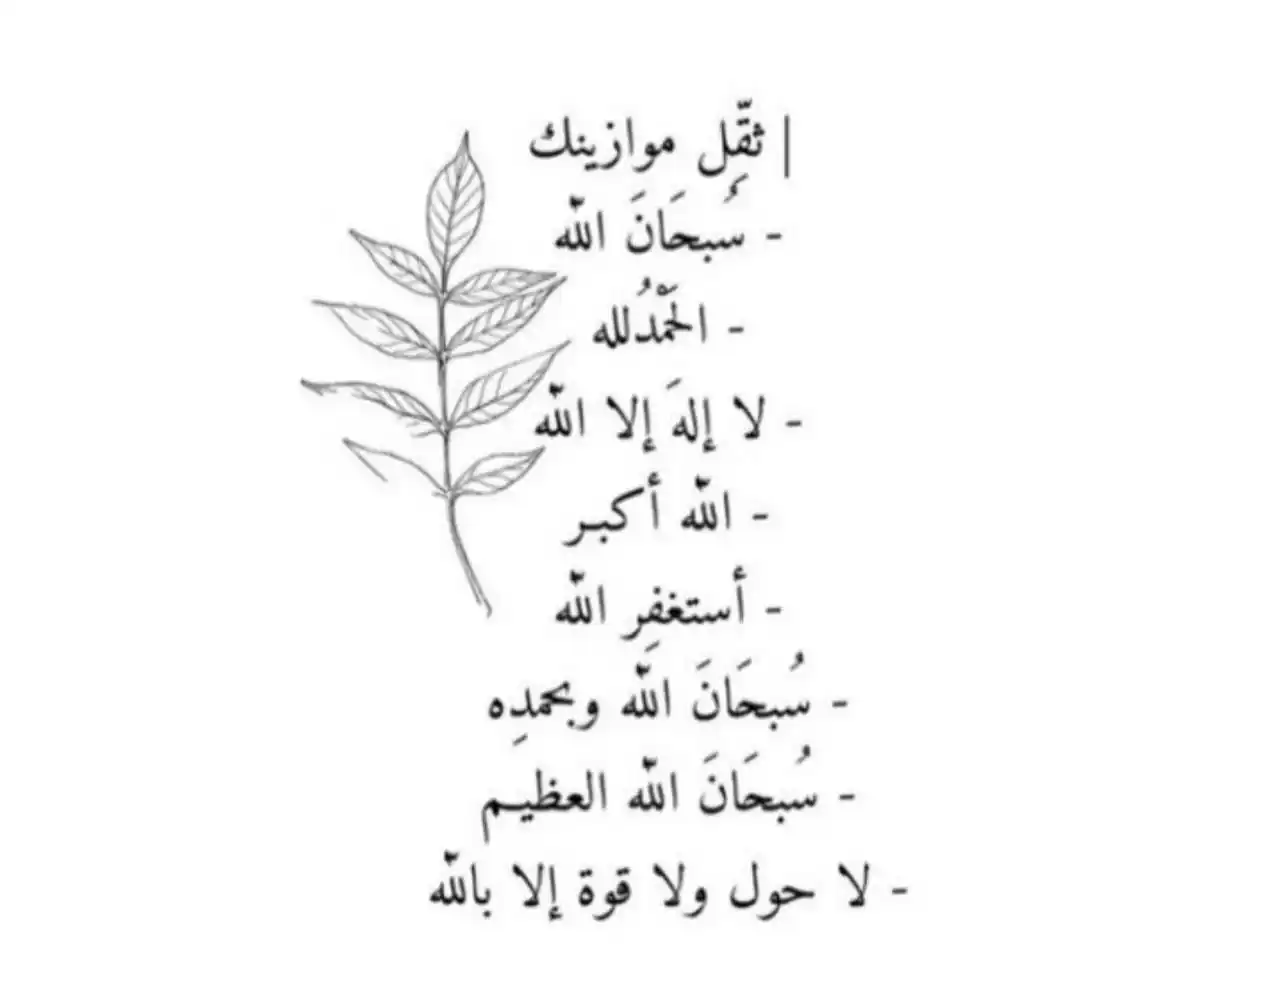 | ثقِّل موازينك
- سُبحَانَ اللّٰه
- الحَمْدُلله
- لا إلهَ إلا اللّٰه
- اللّٰه أكبـر
- أستغفِر اللّٰه
- سُبحَانَ اللّٰه وبحمدِه
- سُبحَانَ اللّٰه العظيـم
- لا حول ولا قوة إلا باللّٰه